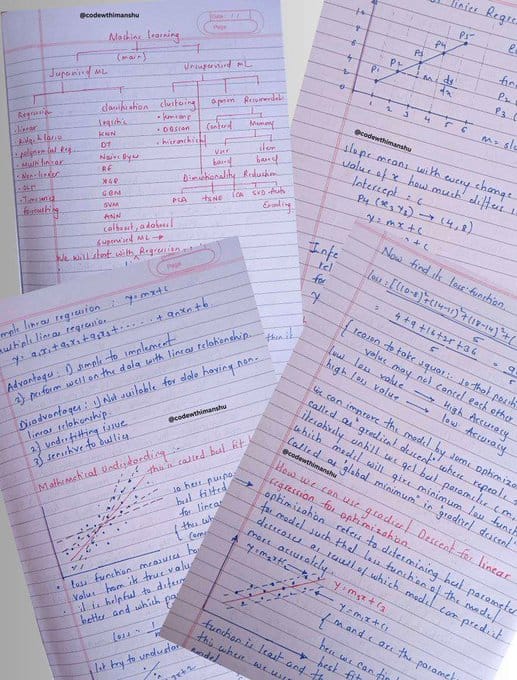 @codewthimanshu
Date: / /
Page
Machine learning
(main)
Supervised ML
Unsupervised ML
Regression
• linear
• polynomial Reg.
• Multilinear
• Non-linear
forecasting
classification
Logistic
KNN
DT
Naive Byes
RF
XGB
GBM
SVM
ANN
catboost, adaboost
supervised ML →
clustering
• kmeans
• DBScan
• hierarchical
apriori
Recommended
Content
Memory
user
based
item
based
Dimentionality Reduction
PCA
TSNE
ICA
SVD
Encoding
We will start with Regression
linear Regre
10
8
6
4
2
0
P1
P2
P3
P4
P5
M =
dy
dx
1 2 3 4 5 6
m = slo
P2 (
P3 (
@codewthimanshu
slope means with every change
value of x how much differs i
Intercept = c
P4 (x4, y4) → (4, 8)
y = mx + c
x + c
Page
simple linear regression : y = mx + c
multiple linear regression
y = a1x1 + a2x2 + a3x3 + .... + anxn + b
Advantages : 1) simple to implement
2) perform well on the data with linear relationship.
Disadvantages : 1) Not suitable for data having non-
linear relationship.
2) underfitting issue
3) sensitive to outliers
@codewthimanshu
Mathematical Understanding :-
this is called best fit
so here purpo
best fitted
for linea
• loss function measures ho
value from its true valu
• it is helpful to determ
better and which pa
loss = 1
let try to understan
Infe
rel
for
y
Now find its loss function
loss = [(10-8)² + (14-11)² + (18-14)² + (
5
= 4 + 9 + 16 + 25 + 36
5
{ reason to take square :- so that positi
value may not cancel each other
low loss value → high Accuracy
high loss value → low Accuracy
we can improve the model by some optimiza
called as "gradient descent" where repeat
iteratively untill we get best parameter c, m
which model will give minimum loss funct
called as "global minimum" in "gradient descent
@codewthimanshu
How we can use gradient Descent for linear
regression for optimization.
→ optimization refers to determining best parameter
for model such that loss function of the model
decreases as result of which model can predict
more accurately.
y = m2x + c2
y = m3x + c3
y = m1x + c1
{ m and c are the paramet
here we can fin
best fit
function is least and th
this where we use
model